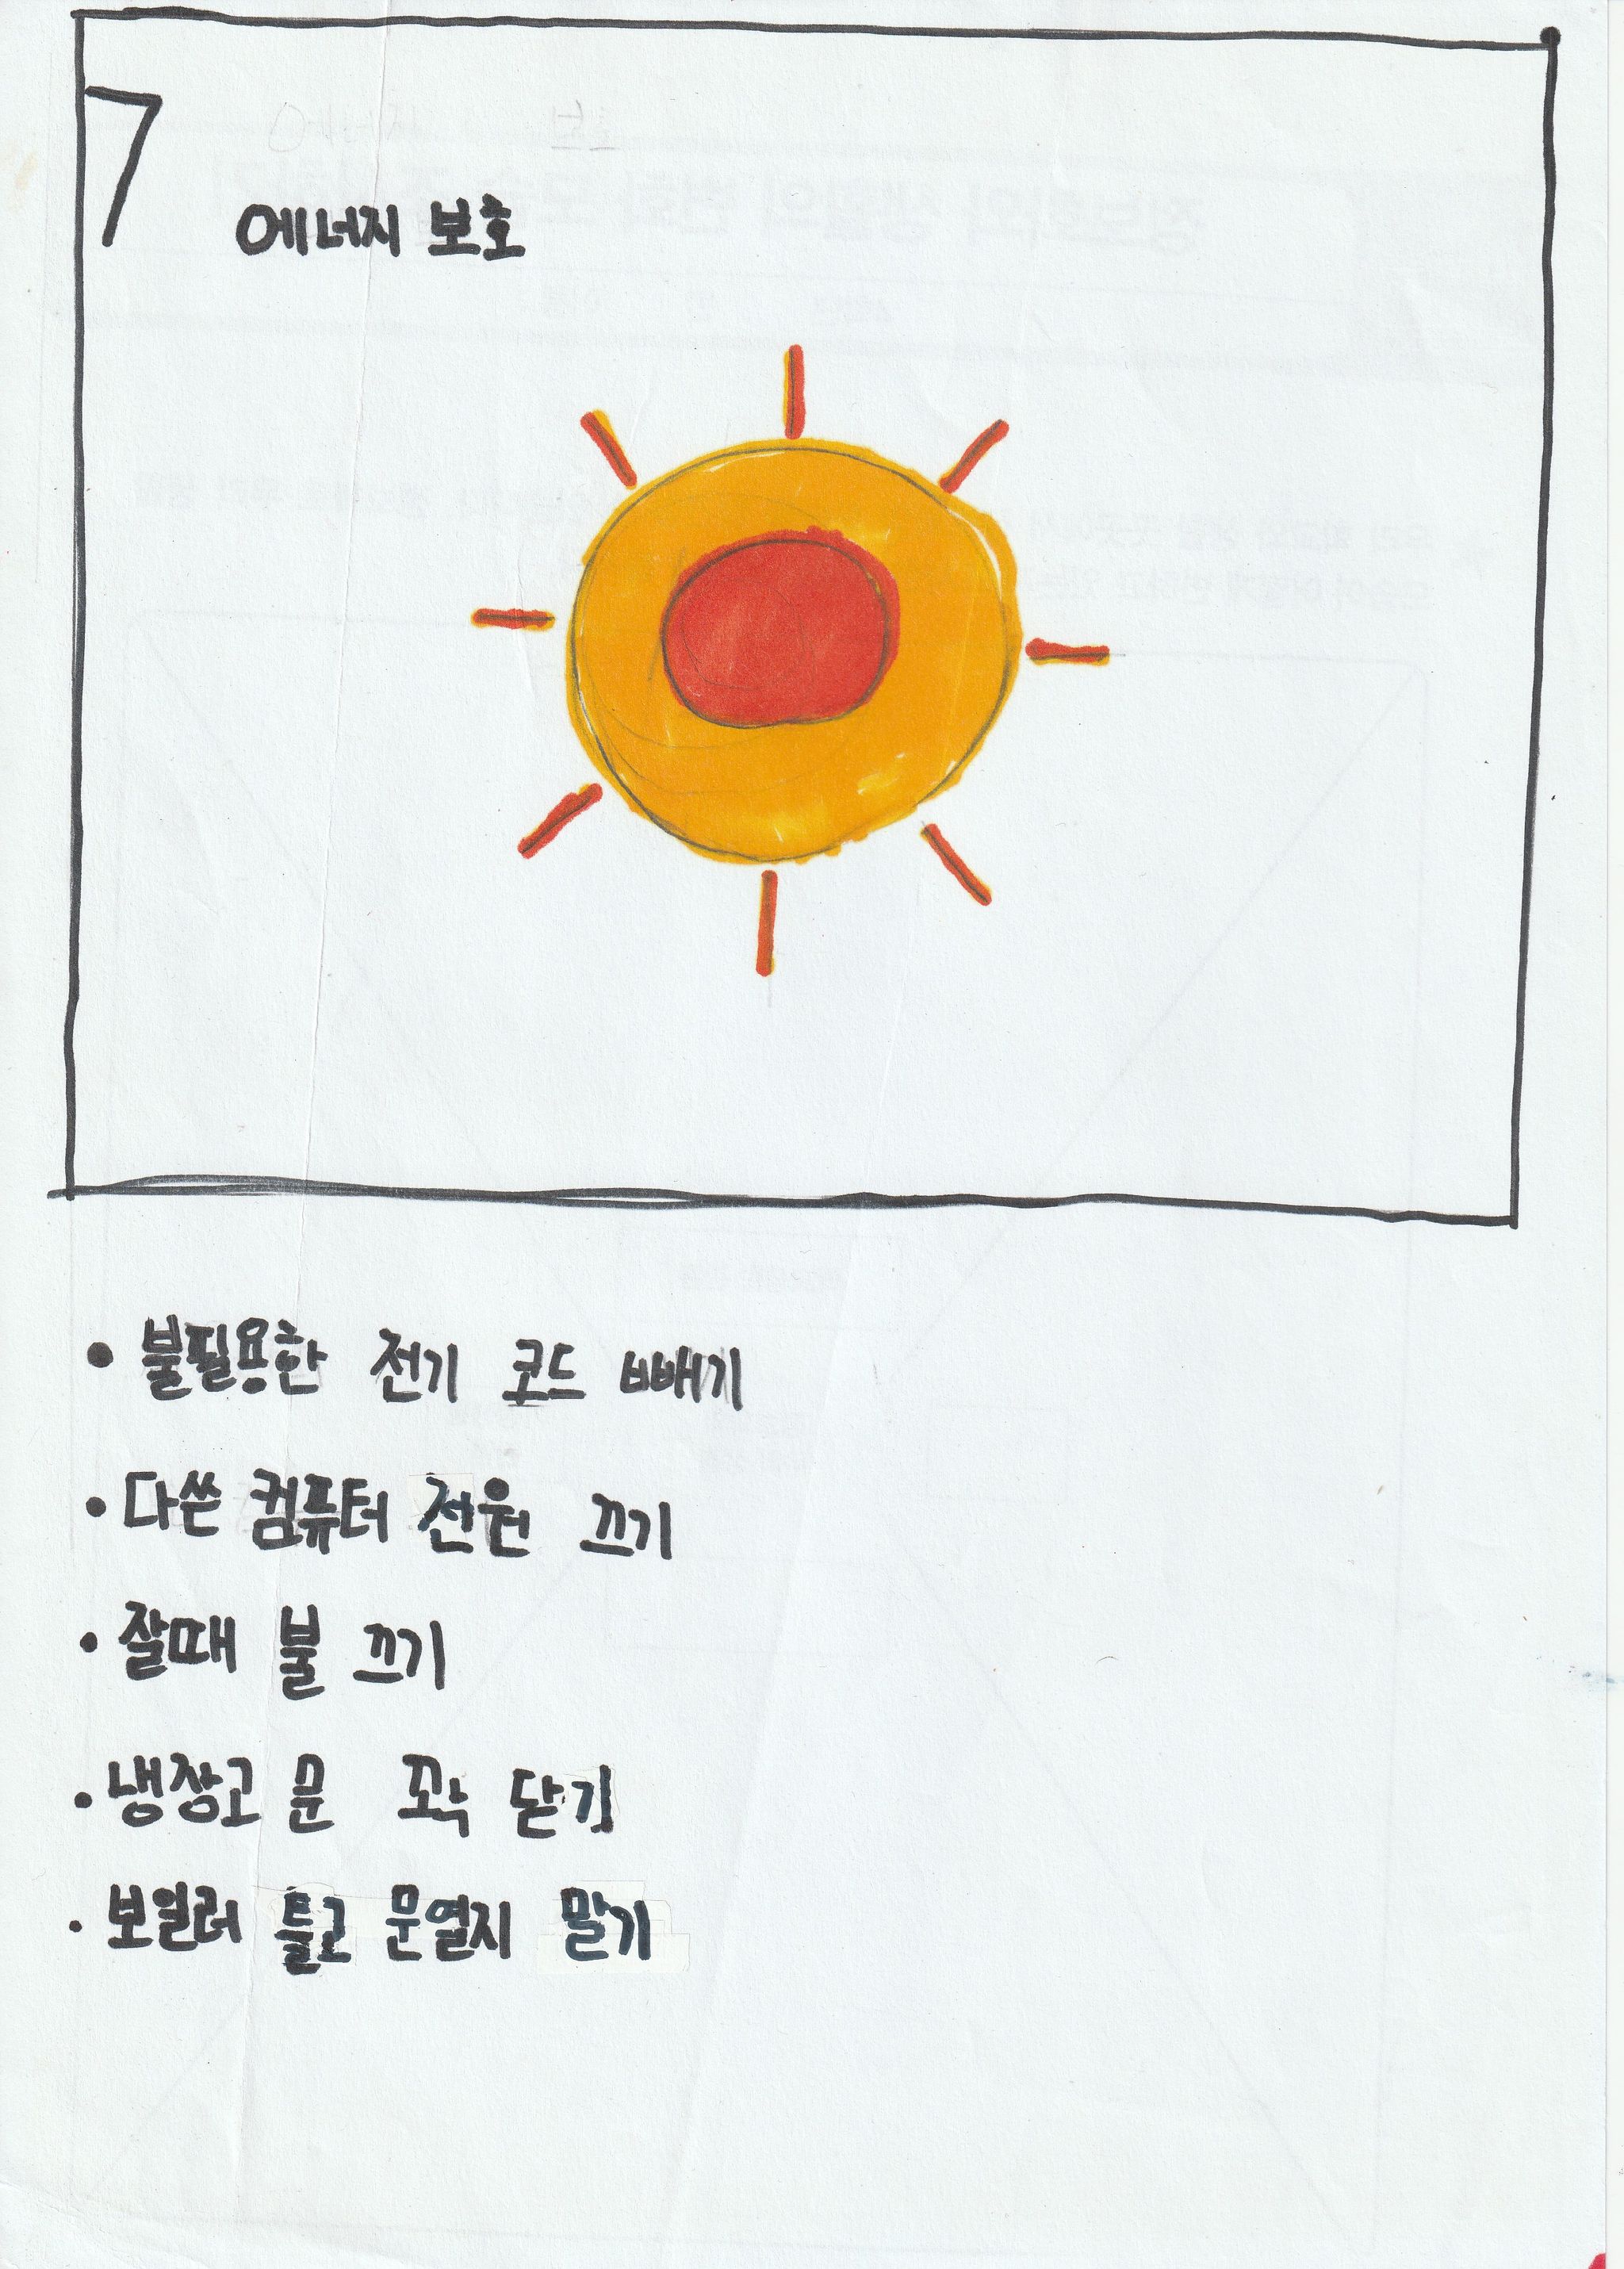 7
에너지 보호
• 불필요한 전기 코드 빼기
• 다쓴 컴퓨터 전원 끄기
• 잘때 불 끄기
• 냉장고 문 꼭 닫기
• 보일러 틀고 문열지 말기